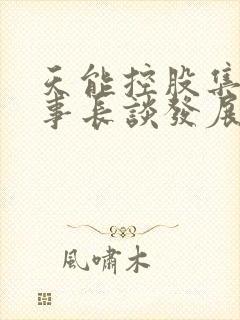 天能控股集
事長談發展
風嘯木